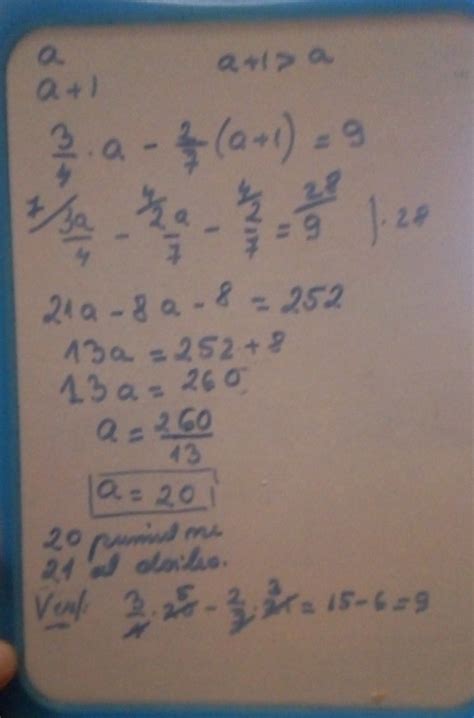 a a+1 > a
a+1
3/4 · a - 2/7 (a+1) = 9
7/ 3a/4 - 4/ 2a/7 - 4/ 2/7 = 28/ 9 | · 28
21a - 8a - 8 = 252
13a = 252 + 8
13a = 260
a = 260/13
a = 20
20 primul nr
21 al doilea.
Verif: 3/4 · 20 5 - 2/7 · 21 3 = 15 - 6 = 9